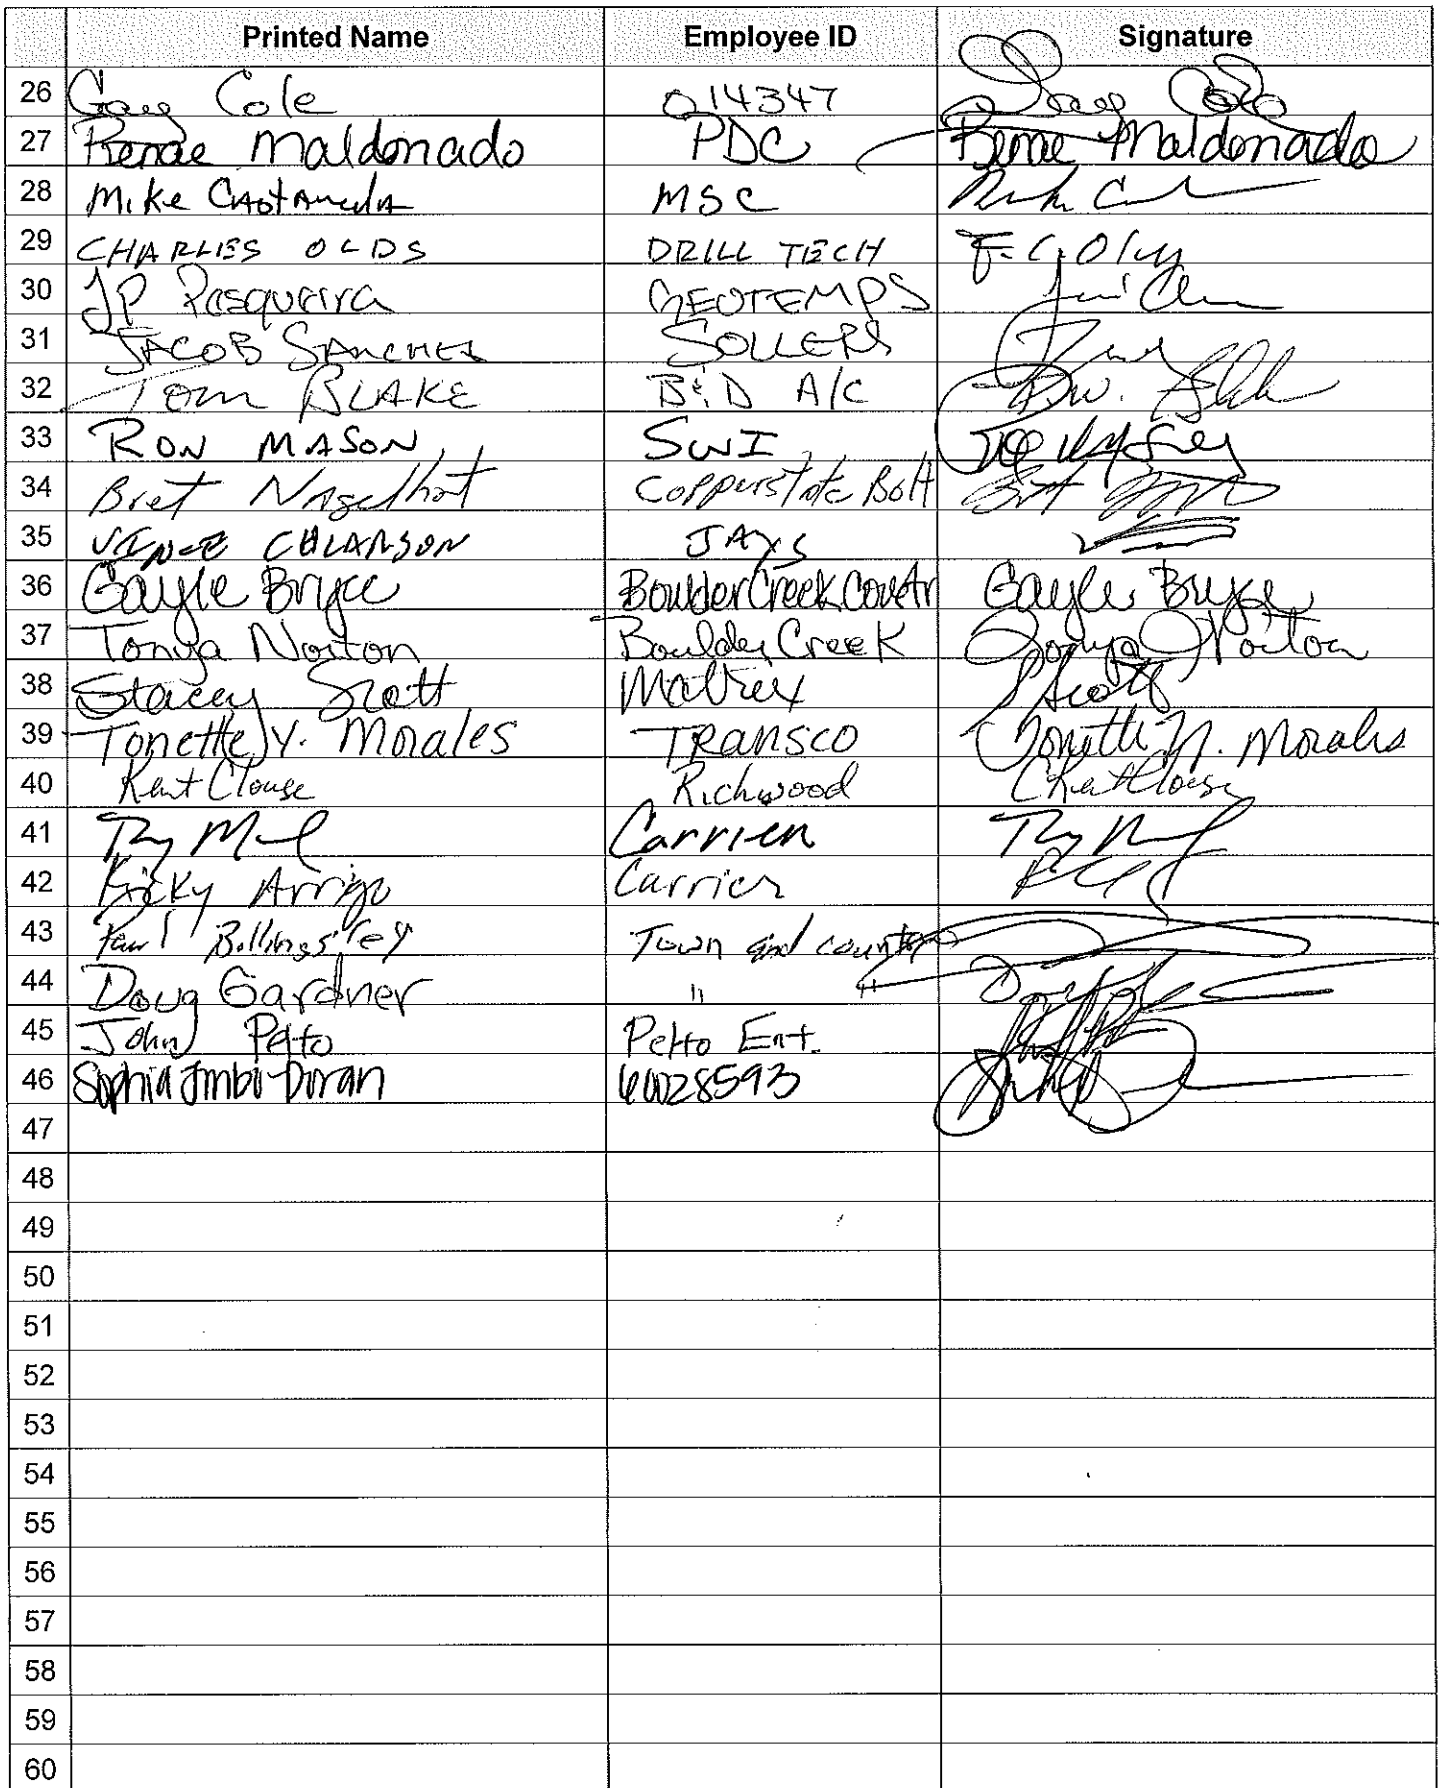 Printed Name Employee ID Signature
26 Gary Cole 014347 Gary Cole
27 Renae Maldonado PDC Renae Maldonado
28 Mike Castaneda MSC
29 CHARLES OLDS DRILL TECH F. C. Olds
30 JP Pesqueira GEOTEMPS
31 JACOB SANCHEZ SOLLERS
32 Tom BLAKE B&D A/C
33 RON MASON SWI
34 Bret Nagelhout Copperstate Bolt
35 VINCE JAYS
36 Gayle Bryce Boulder Creek Gayle Bryce
37 Tonya Norton Boulder Creek Tonya Norton
38 Stacey Scott SScott
39 Tonette Y. Morales TRANSCO Tonette Y. Morales
40 Kent Clouse Richwood
41 Carrier
42 Ricky Arrigo Carrier
43 Paul Billingsley Town and country
44 Doug Gardner "
45 John Petto Petto Ent.
46 Sophia 60028593
47
48
49
50
51
52
53
54
55
56
57
58
59
60